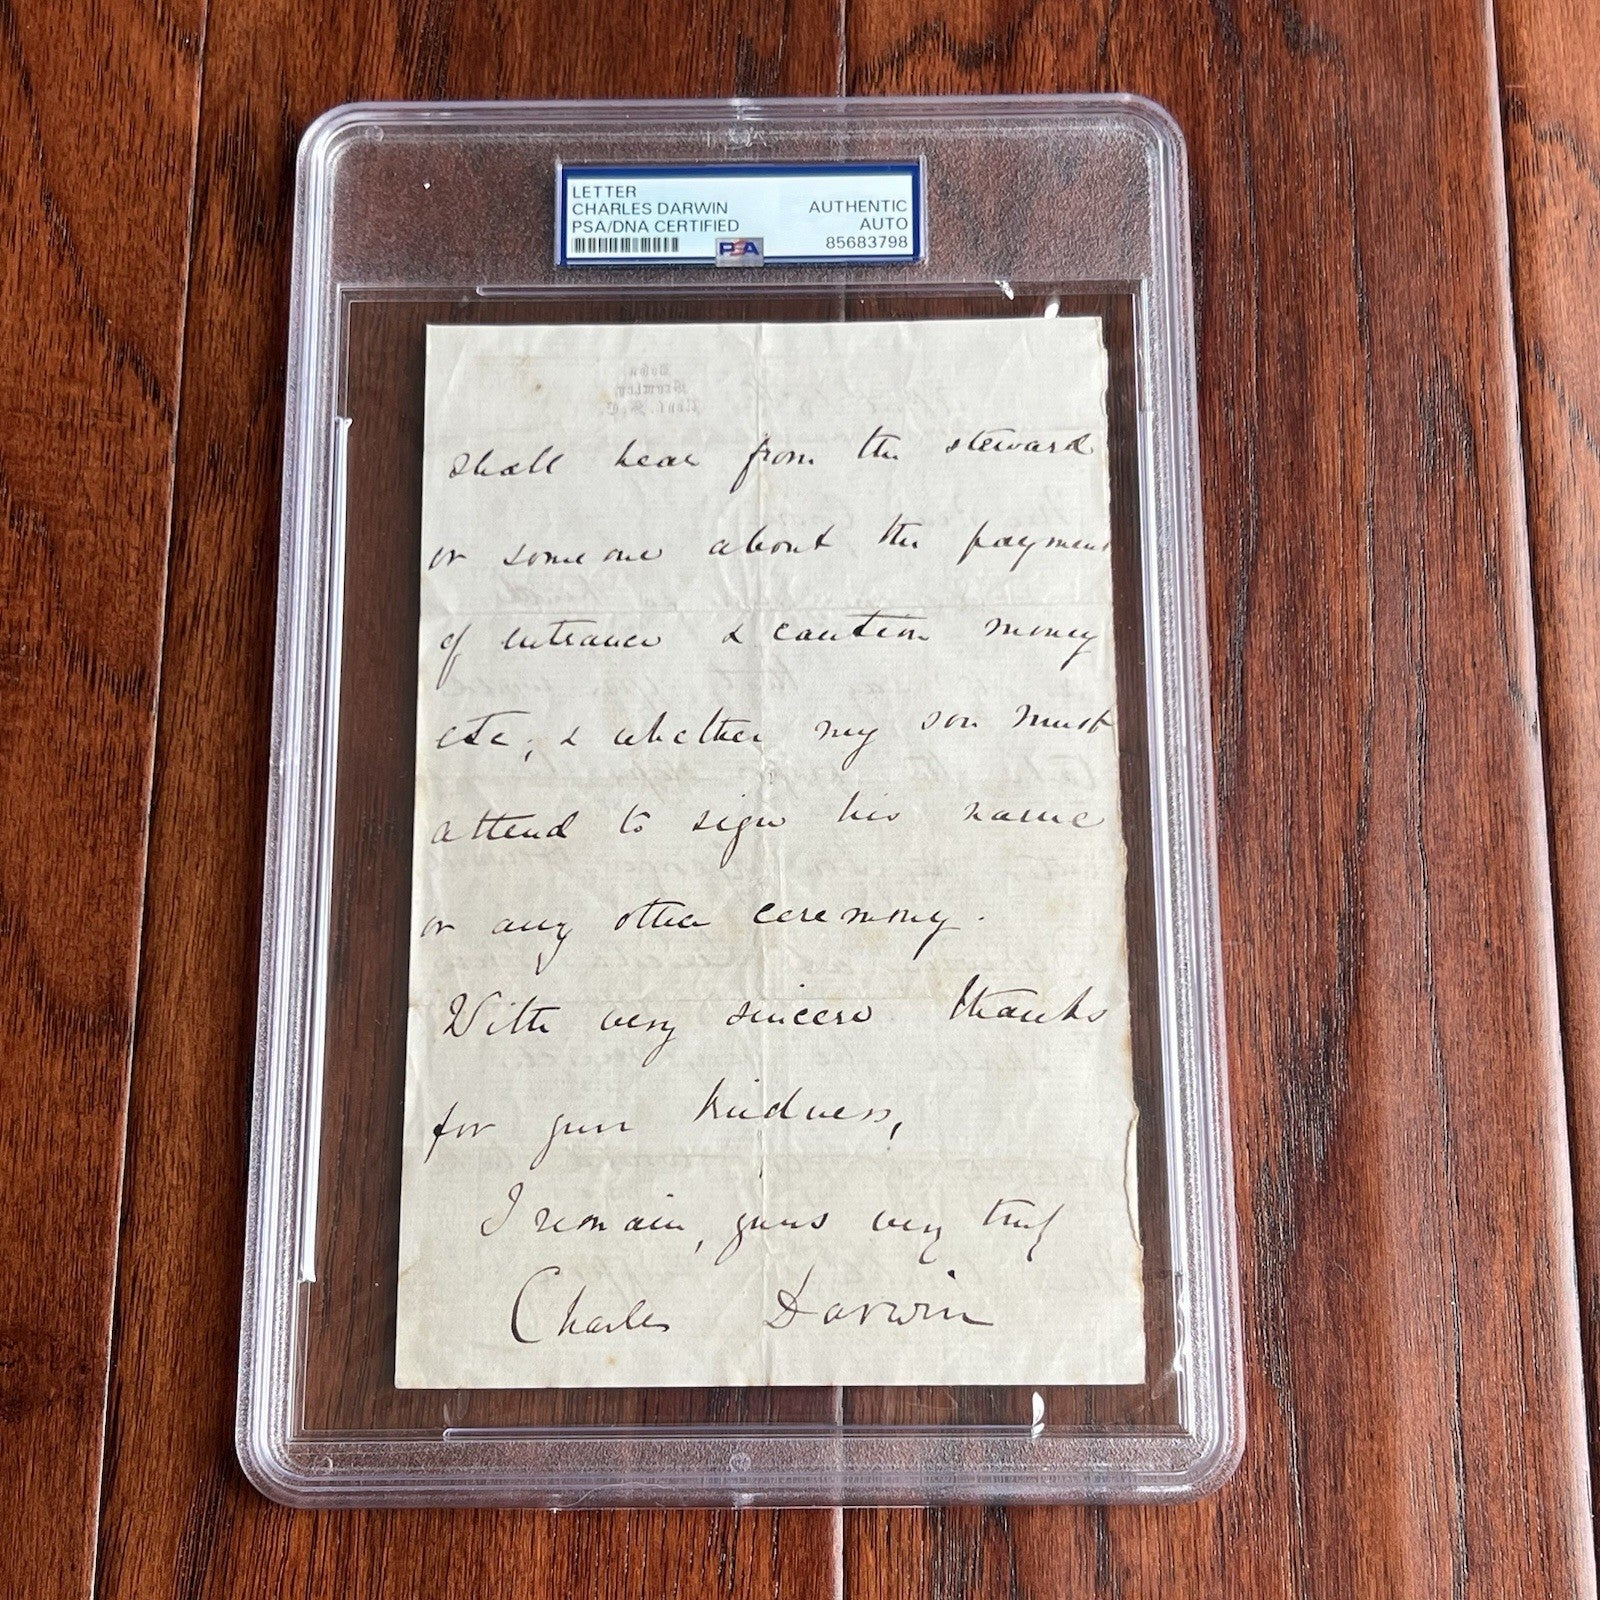 LETTER
CHARLES DARWIN
PSA/DNA CERTIFIED
AUTHENTIC
AUTO
85683798
PSA
Down
Bromley
Kent. S.E.
shall hear from the steward
or some one about the payment
of entrance & caution money
etc, & whether my son must
attend to sign his name
or any other ceremony.
With very sincere thanks
for your kindness,
I remain, yours very truly
Charles Darwin